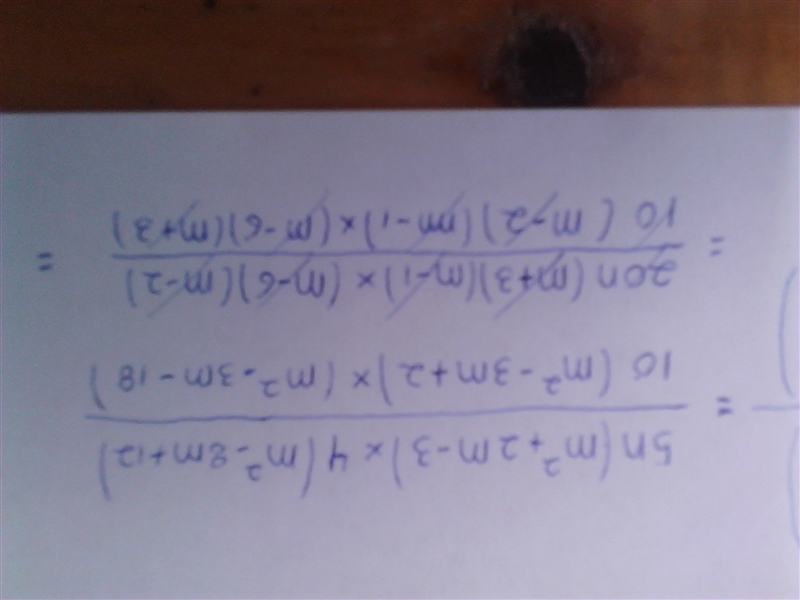 = 5n(m²+2m-3)×4(m²-8m+12)
10(m²-3m+2)×(m²-3m-18)
= 20n(m+3)(m-1)×(m-6)(m-2) =
10(m-2)(m-1)×(m-6)(m+3)